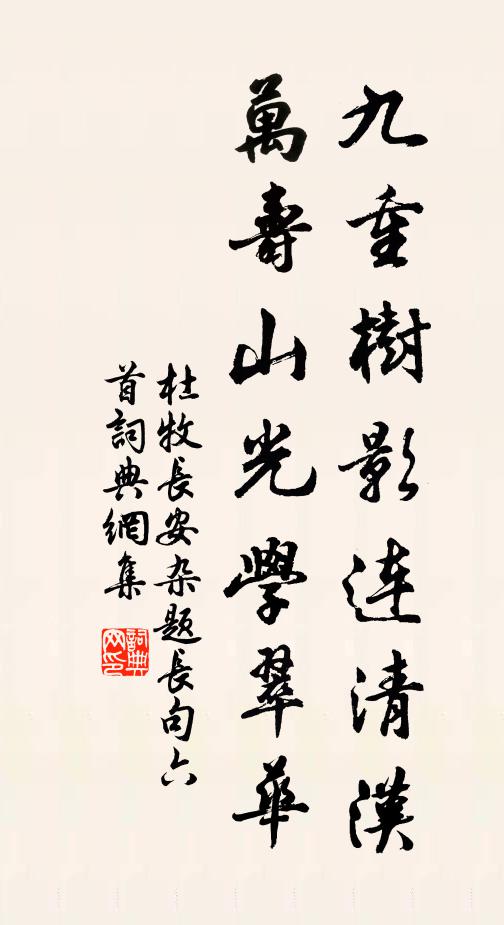 九重樹影連清漢
萬壽山光學翠華
杜牧長安杂題長句六
首詞典網集
詞典
网印